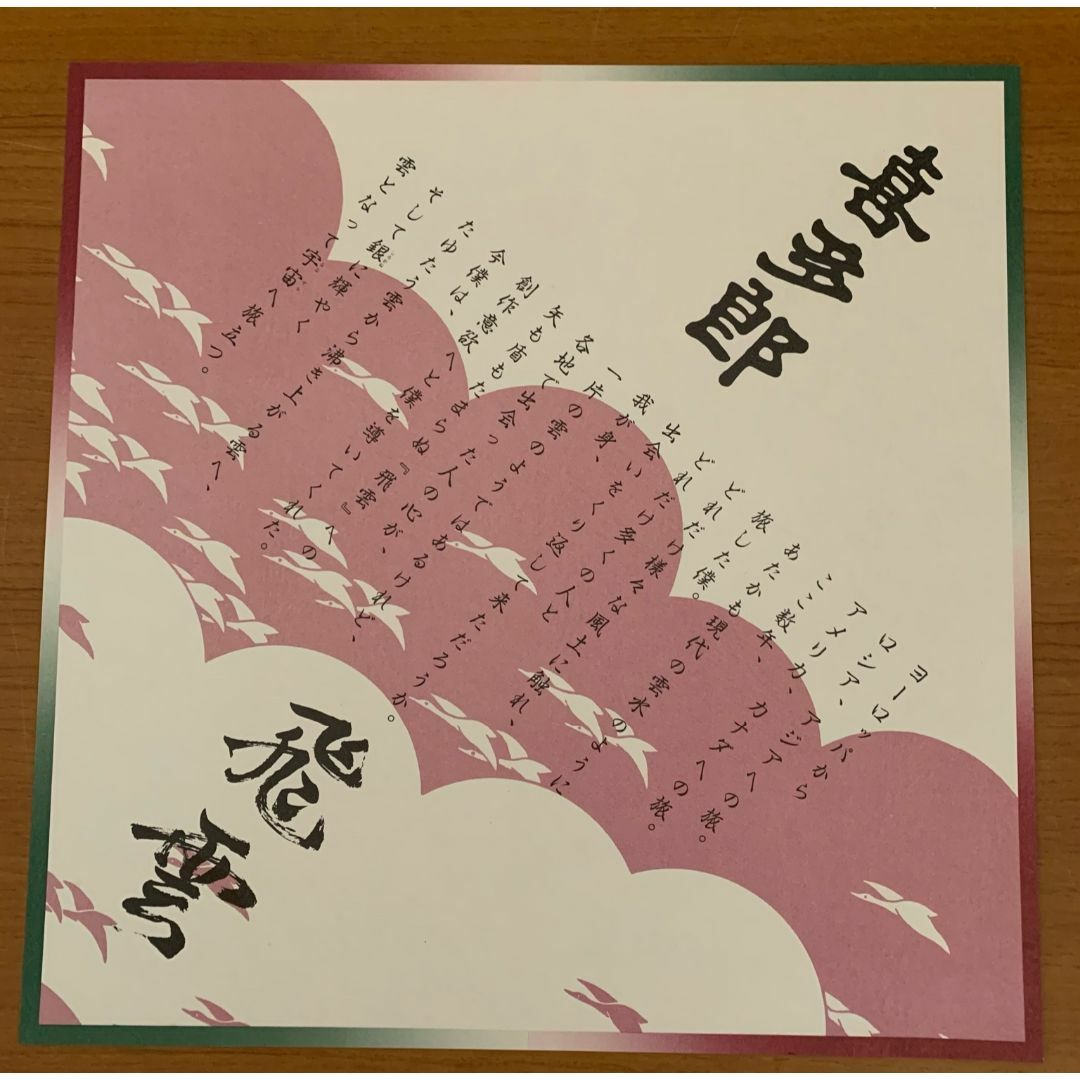 喜多郎
ヨーロッパから
ロシア、アジアへの旅。
アメリカ、カナダへの旅。
ここ数年、
あたかも現代の雲水のように
旅した僕。
どれだけ様々な風土に触れ、
どれだけ多くの人と
出会いをくり返して来ただろうか。
我が身、
一片の雲のようではあるけれど、
各地で出会った人の心が、
矢も盾もたまらぬ『飛雲』への
創作意欲へと僕を導いてくれた。
今僕は、
たゆたう雲から沸き上がる雲へ、
そして銀に輝やく
雲となって宇宙へ旅立つ。
飛雲